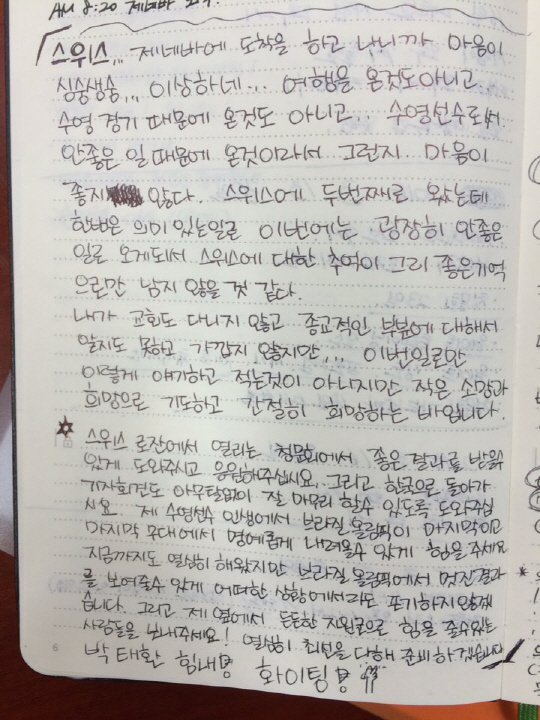 AM 8:20 제네바
스위스... 제네바에 도착을 하고 나니까 마음이
싱숭생숭... 이상하네... 여행을 온것도아니고
수영 경기 때문에 온것도 아니고.. 수영선수로써
안좋은 일 때문에 온것이라서 그런지. 마음이
좋지 않다. 스위스에 두번째로 왔는데
한번은 의미 있는일로 이번에는 굉장히 안좋은
일로 오게되서 스위스에 대한 추억이 그리 좋은기억
으로만 남지 않을 것 같다.
내가 교회도 다니지 않고 종교적인 부분에 대해서
알지도 못하고 가깝지 않지만... 이번일로만
이렇게 얘기하고 적는것이 아니지만 작은 소망과
희망으로 기도하고 간절히 희망하는 바입니다.
스위스 로잔에서 열리는 청문회에서 좋은 결과를 받을수
있게 도와주시고 응원해주십시요. 그리고 한국으로 돌아가
기자회견도 아무탈없이 잘 마무리 할수 있도록 도와주십
시요. 제 수영선수 인생에서 브라질 올림픽이 마지막이고
마지막 무대에서 명예롭게 내려올수 있게 힘을 주세요
지금까지도 열심히 해왔지만 브라질 올림픽에서 멋진결과
를 보여줄수 있게 어떠한 상황에서라도 포기하지않겠
습니다. 그리고 제 옆에서 든든한 지원군으로 힘을 줄수있는
사람들을 보내주세요! 열심히 최선을 다해 준비하겠습니다
박태환 힘내 화이팅
6